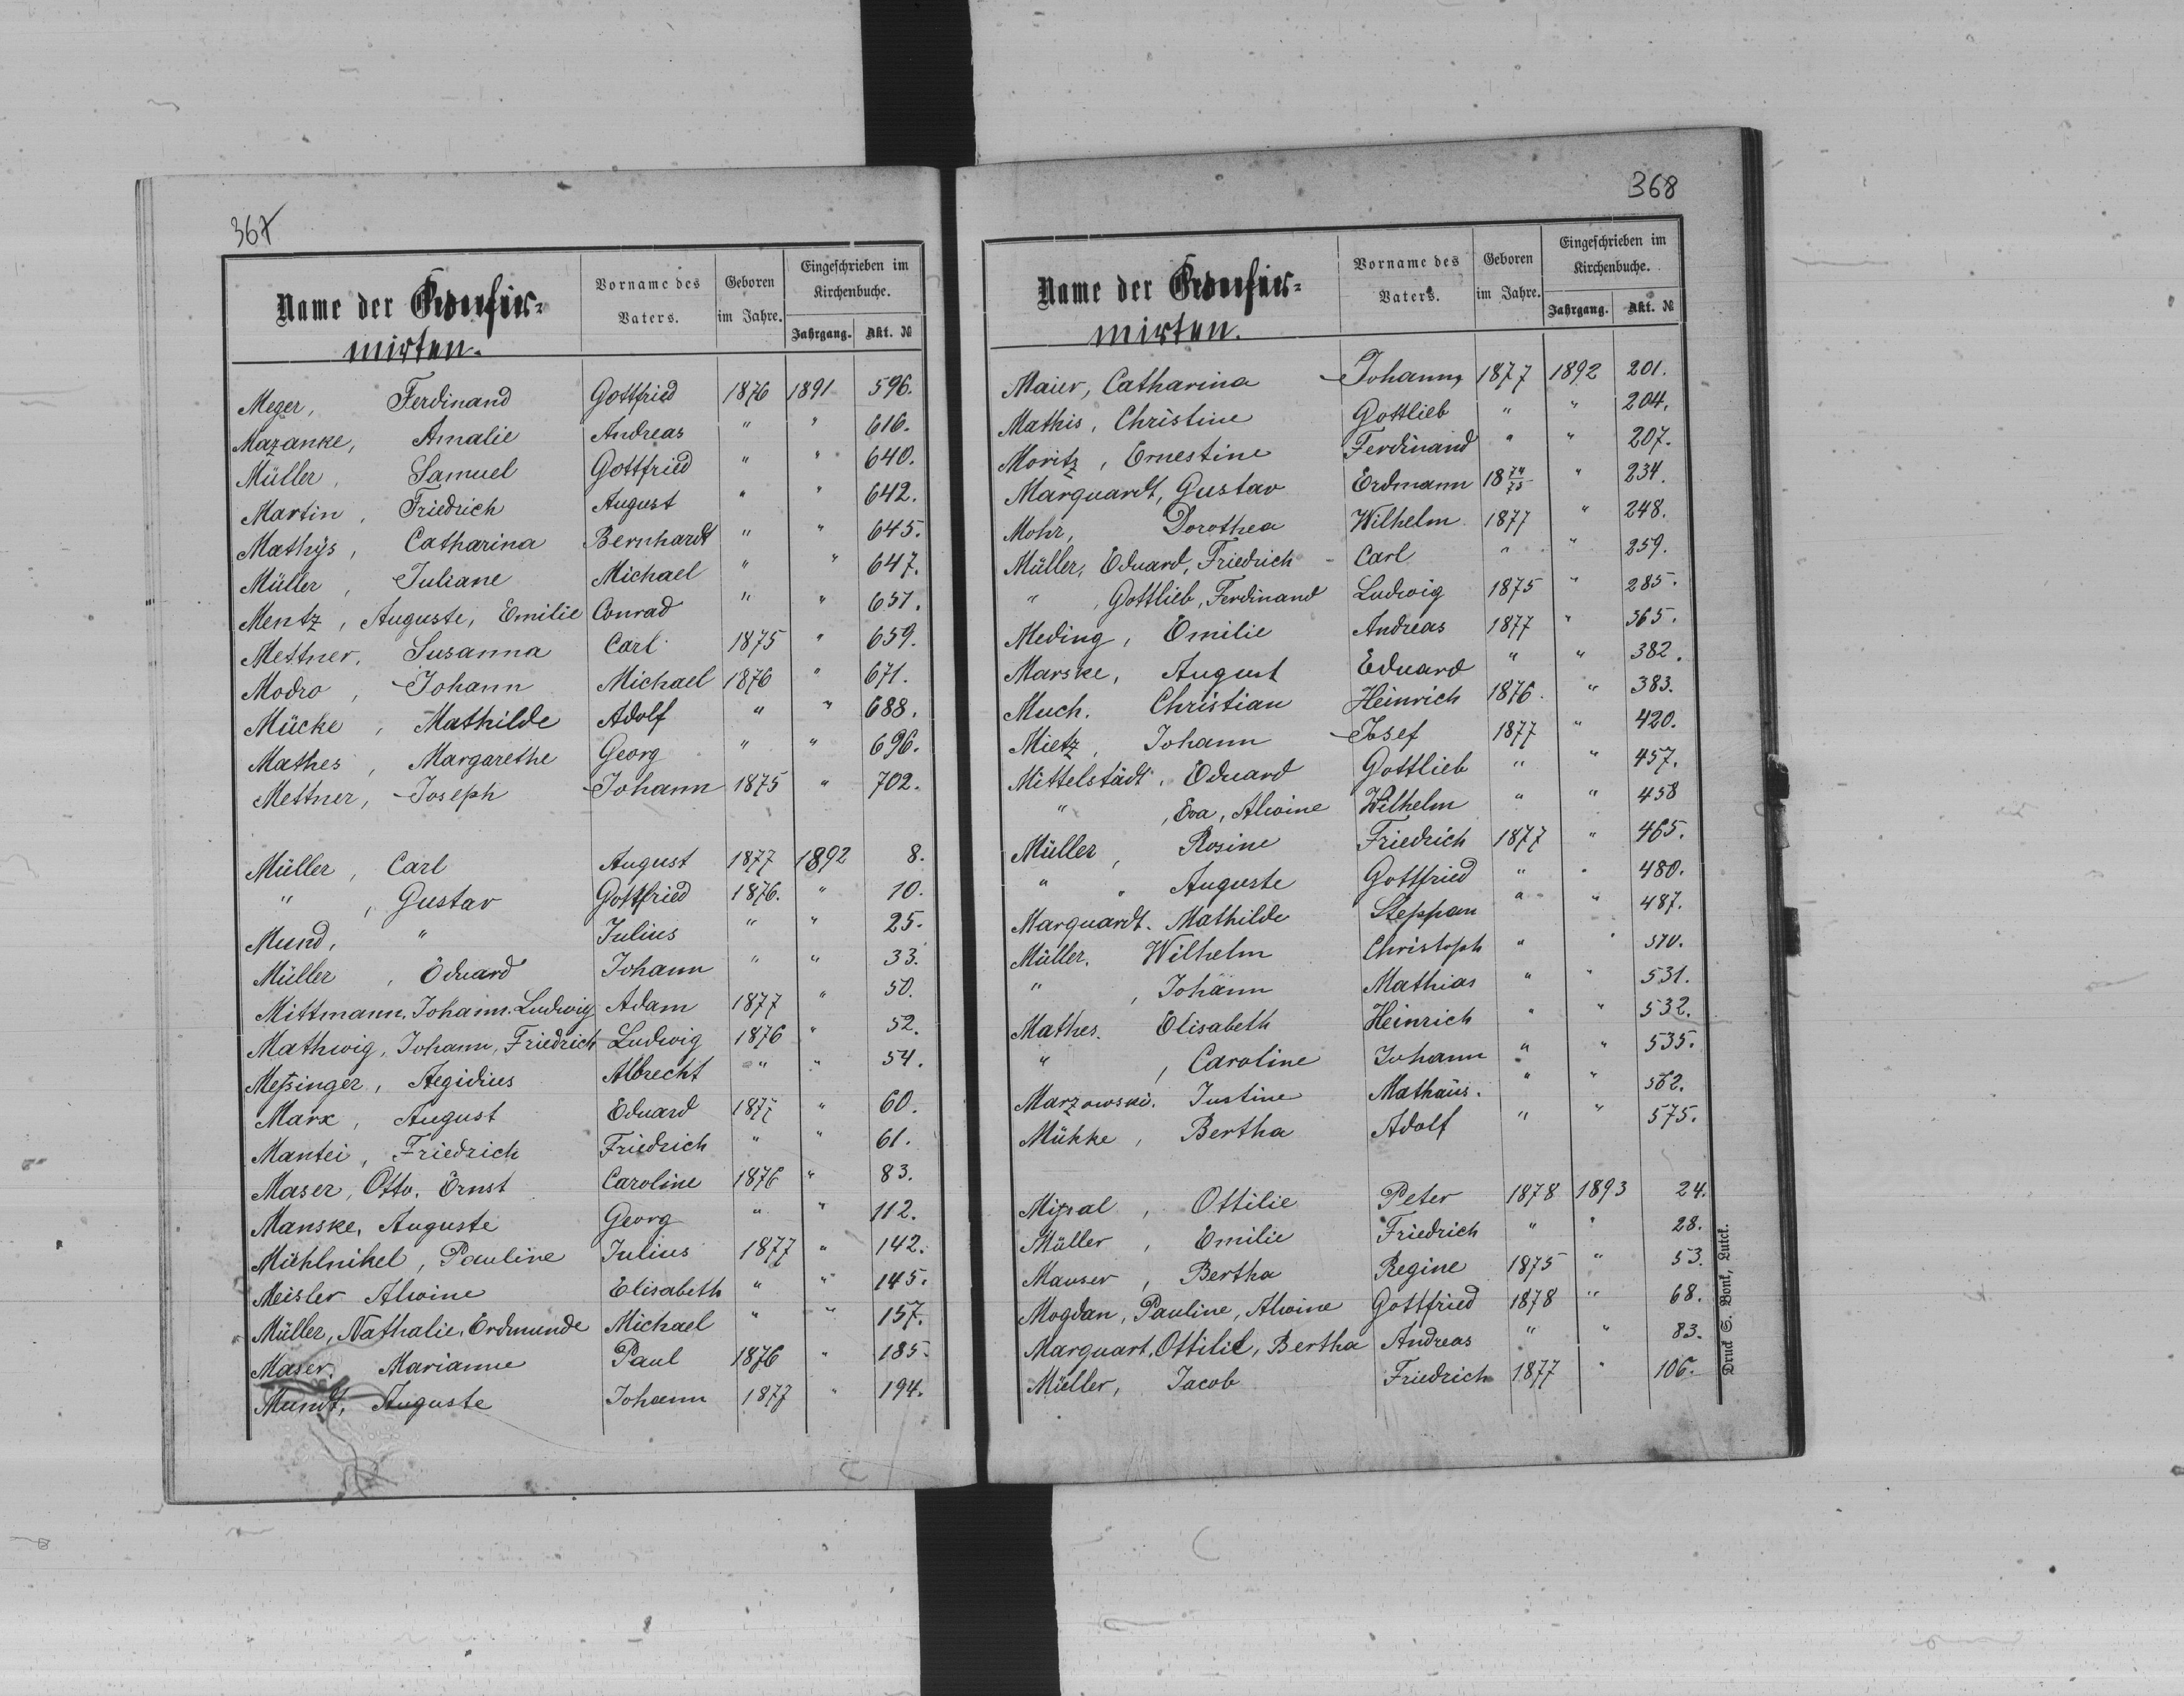 367
Name der Confir-
mirten.
Vorname des Vaters.
Geboren im Jahre.
Eingeschrieben im Kirchenbuche.
Jahrgang. Akt. №
Meger, Ferdinand Gottfried 1876 1891 596.
Mazanke, Amalie Andreas " " 616.
Müller, Samuel Gottfried " " 640.
Martin, Friedrich August " " 642.
Mathÿs, Catharina Bernhardt " " 645.
Müller, Juliane Michael " " 647.
Mentz, Auguste, Emilie Conrad " " 651.
Mettner, Susanna Carl 1875 " 659.
Modro, Johann Michael 1876 " 671.
Mücke, Mathilde Adolf " " 688.
Mathes, Margarethe Georg " " 696.
Mettner, Joseph Johann 1875 " 702.
Müller, Carl August 1877 1892 8.
", Gustav Gottfried 1876. " 10.
Mund, " Julius " " 25.
Müller, Eduard Johann " " 33.
Mittmann, Johann, Ludwig Adam 1877 " 50.
Mathwig, Johann, Friedrich Ludwig 1876 " 52.
Meßinger, Aegidius Albrecht " " 54.
Marx, August Eduard 1877 " 60.
Mantei, Friedrich Friedrich " " 61.
Maser, Otto, Ernst Caroline 1876 " 83.
Manske, Auguste Georg " " 112.
Mühlnikel, Pauline Julius 1877 " 142.
Meisler Alwine Elisabeth " " 145.
Müller, Nathalie, Erdmunde Michael " " 157.
Maser, Marianne Paul 1876 " 185.
Mundt, Auguste Johann 1877 " 194.
368
Name der Confir-
mirten.
Vorname des Vaters.
Geboren im Jahre.
Eingeschrieben im Kirchenbuche.
Jahrgang. Akt. №
Maier, Catharina Johann 1877 1892 201.
Mathis, Christine Gottlieb " " 204.
Moritz, Ernestine Ferdinand " " 207.
Marquardt, Gustav Erdmann 1874/75 " 234.
Mohr, Dorothea Wilhelm 1877 " 248.
Müller, Eduard, Friedrich - Carl " " 259.
", Gottlieb, Ferdinand Ludwig 1875 " 285.
Meding, Emilie Andreas 1877 " 365.
Marske, August Eduard " " 382.
Much. Christian Heinrich 1876. " 383.
Mietz, Johann Josef 1877 " 420.
Mittelstädt, Eduard Gottlieb " " 457.
", Eva, Alwine Wilhelm " " 458
Müller, Rosine Friedrich 1877 " 465.
" " Auguste Gottfried " " 480.
Marquardt. Mathilde Steppan " " 487.
Müller. Wilhelm Christoph " " 510.
", Johann Mathias " " 531.
Mathes. Elisabeth Heinrich " " 532.
", Caroline Johann " " 535.
Marzowski. Justine Mathäus. " " 562.
Mühke, Bertha Adolf " " 575.
Mißal, Ottilie Peter 1878 1893 24.
Müller, Emilie Friedrich " " 28.
Mauser, Bertha Regine 1875 " 53.
Mogdan, Pauline, Alwine Gottfried 1878 " 68.
Marquart, Ottilie, Bertha Andreas " " 83.
Müller, Jacob Friedrich 1877 " 106.
Druck S. Bonk, Lutck.